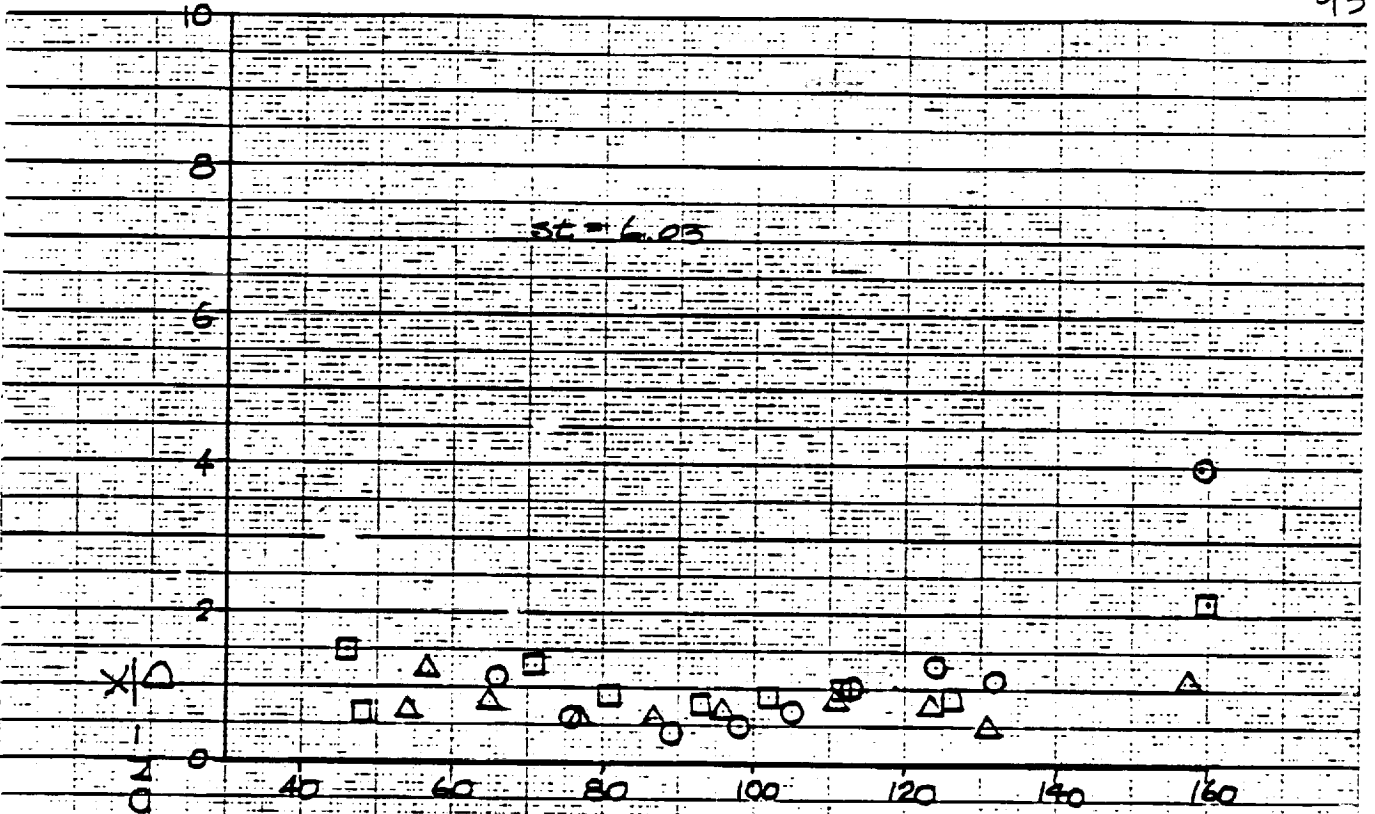 10
8
st = 6.03
6
4
2
0
40 60 80 100 120 140 160